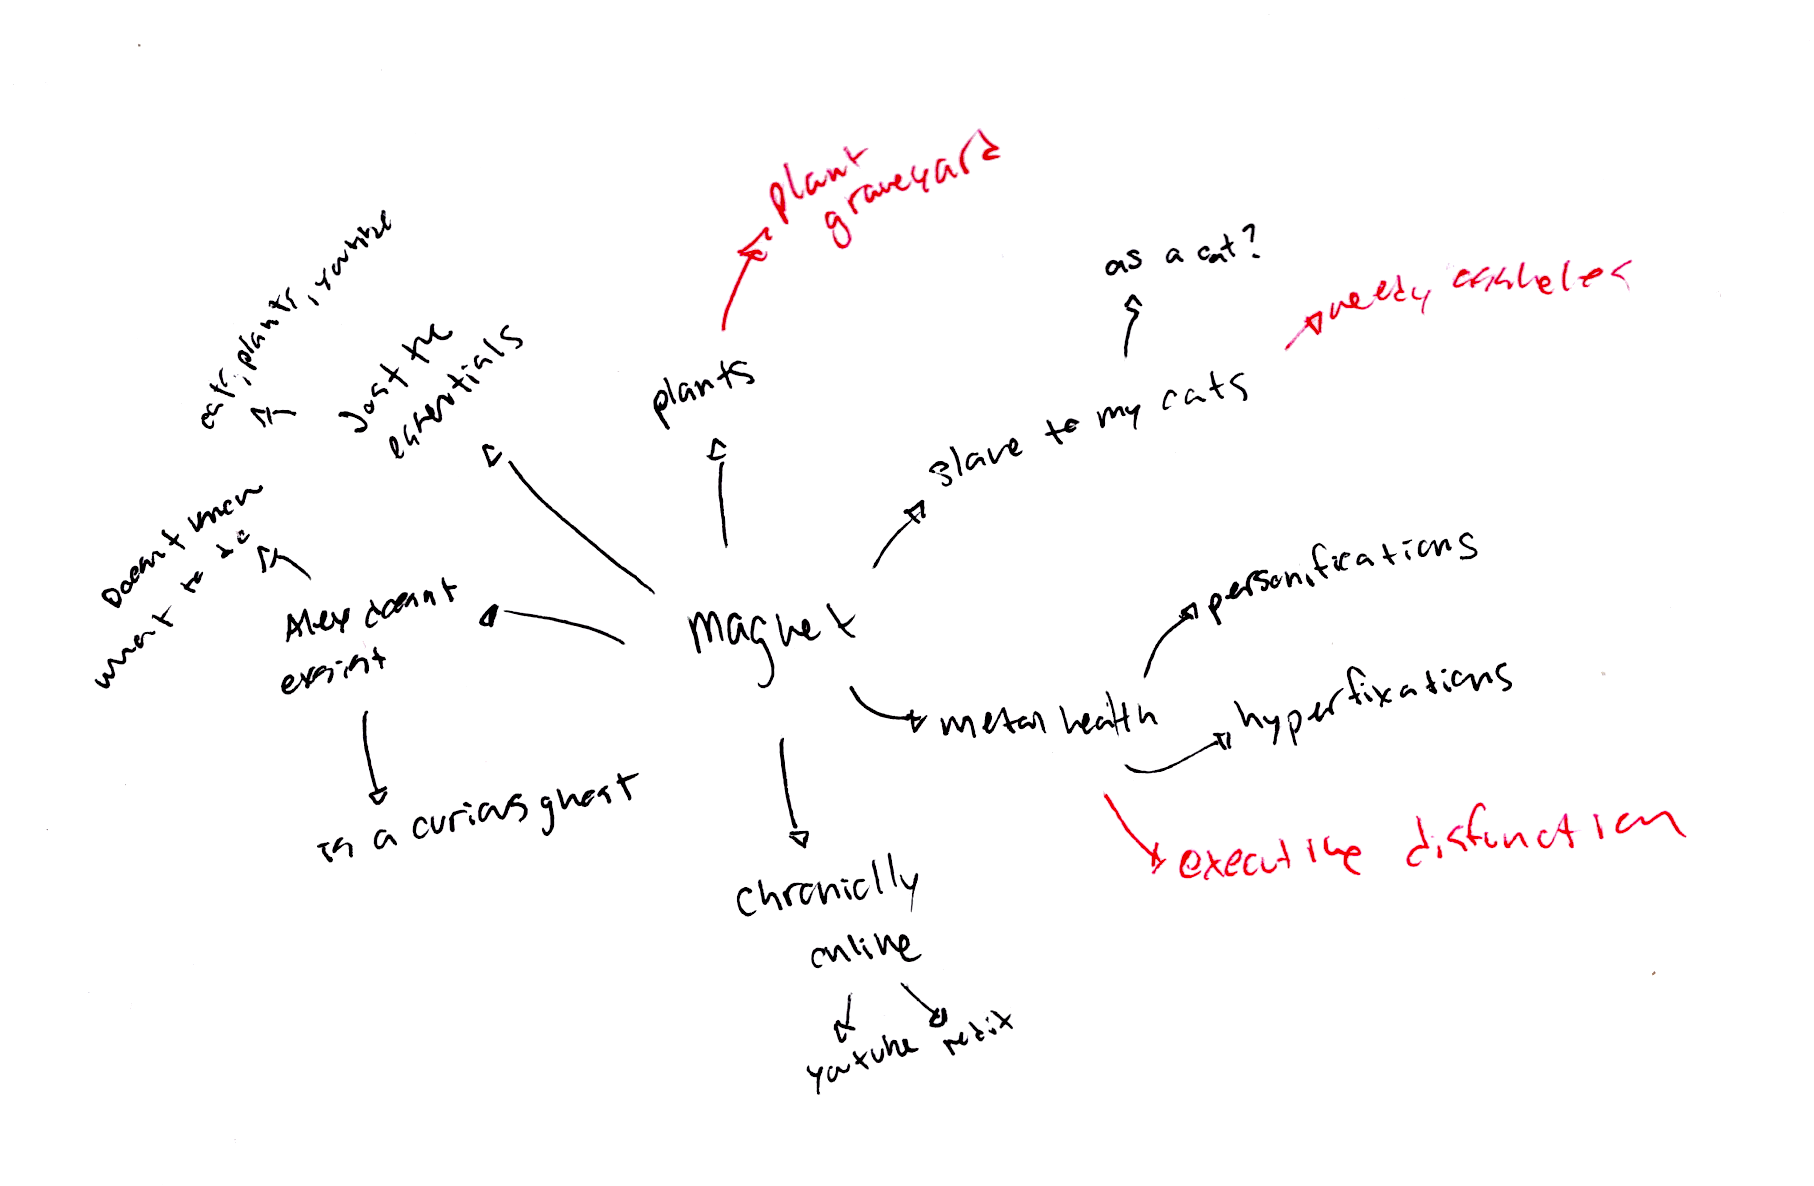 plant
graveyard
as a cat?
needy assholes
cats, plants, youtube
Just the
essentials
plants
slave to my cats
Doesnt know
what to do
Alex doesnt
exsist
magnet
personifications
metal health
hyperfixations
is a curious ghost
executive disfunction
chronically
online
youtube
reddit